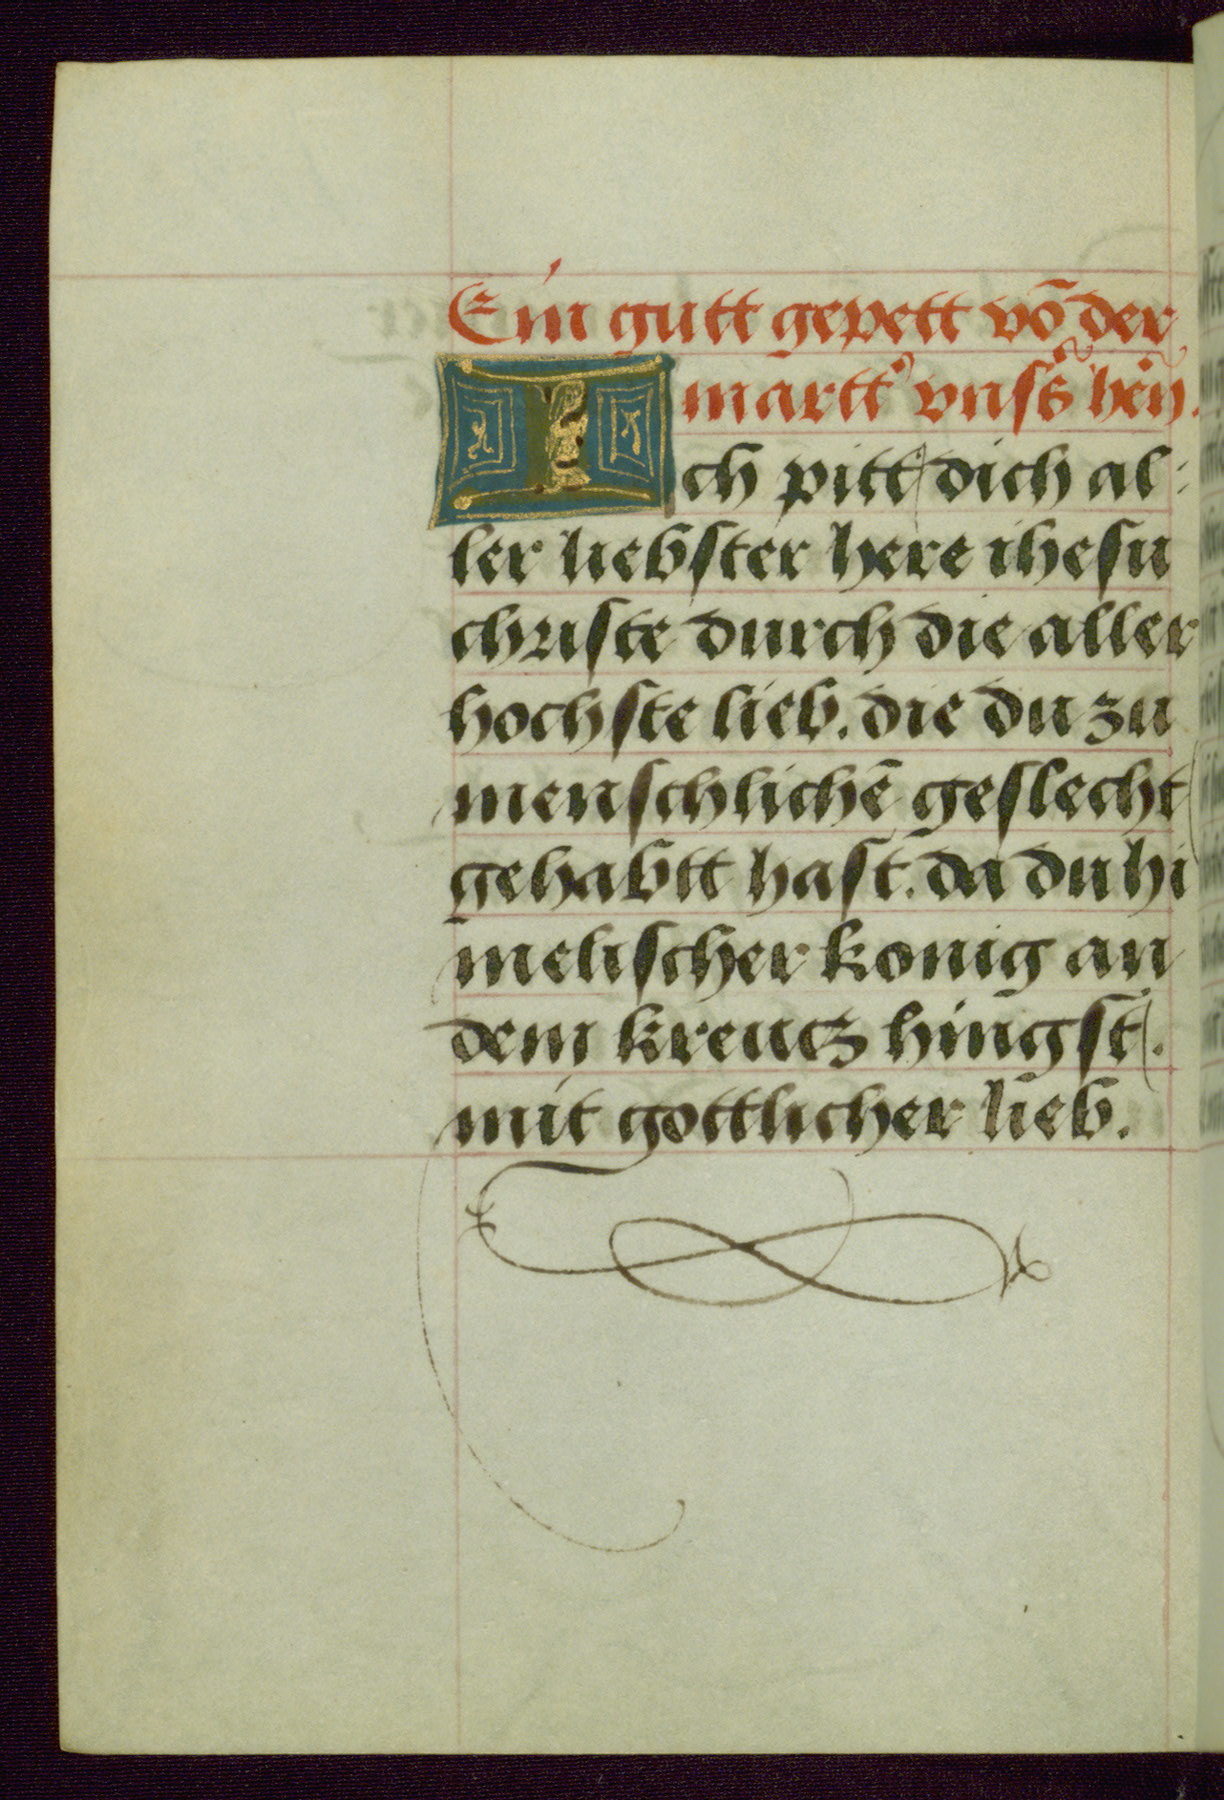 Ein gutt gepett võ der
martt' vnsers herñ.
Ich pitt dich al:
ler liebster here ihesu
christe durch die aller
hochste lieb. die du zu
menschlichē geslecht
gehabtt hast. da du hi
melischer konig an
dem kreutz hingst.
mit gottlicher lieb.